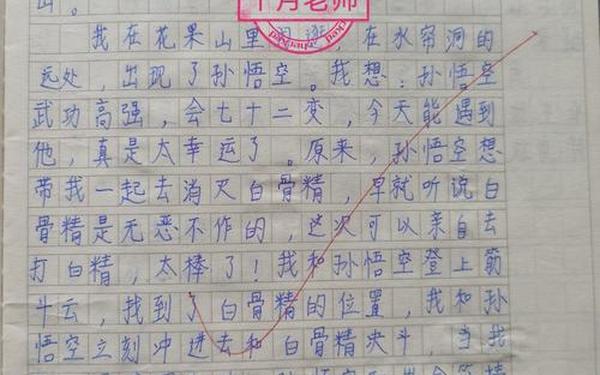 山。
十月老师
我在花果山里闲逛，在水帘洞的
远处，出现了孙悟空。我想：孙悟空
武功高强，会七十二变，今天能遇到
他，真是太幸运了。原来，孙悟空想
带我一起去消灭白骨精，早就听说白
骨精是无恶不作的，这次可以亲自去
打白精，太棒了！我和孙悟空登上筋
斗云，找到了白骨精的位置，我和孙
悟空立刻冲进去和白骨精决斗，当我
孙悟空